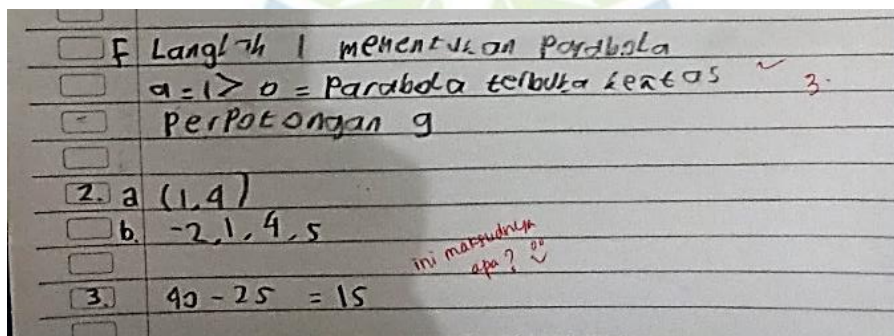 F Langkah 1 menentukan Parabola
a = 1 > 0 = Parabola terbuka keatas
3.
Perpotongan g
2. a (1,4)
b. -2, 1, 4, 5
ini maksudnya
apa?
3. 40 - 25 = 15